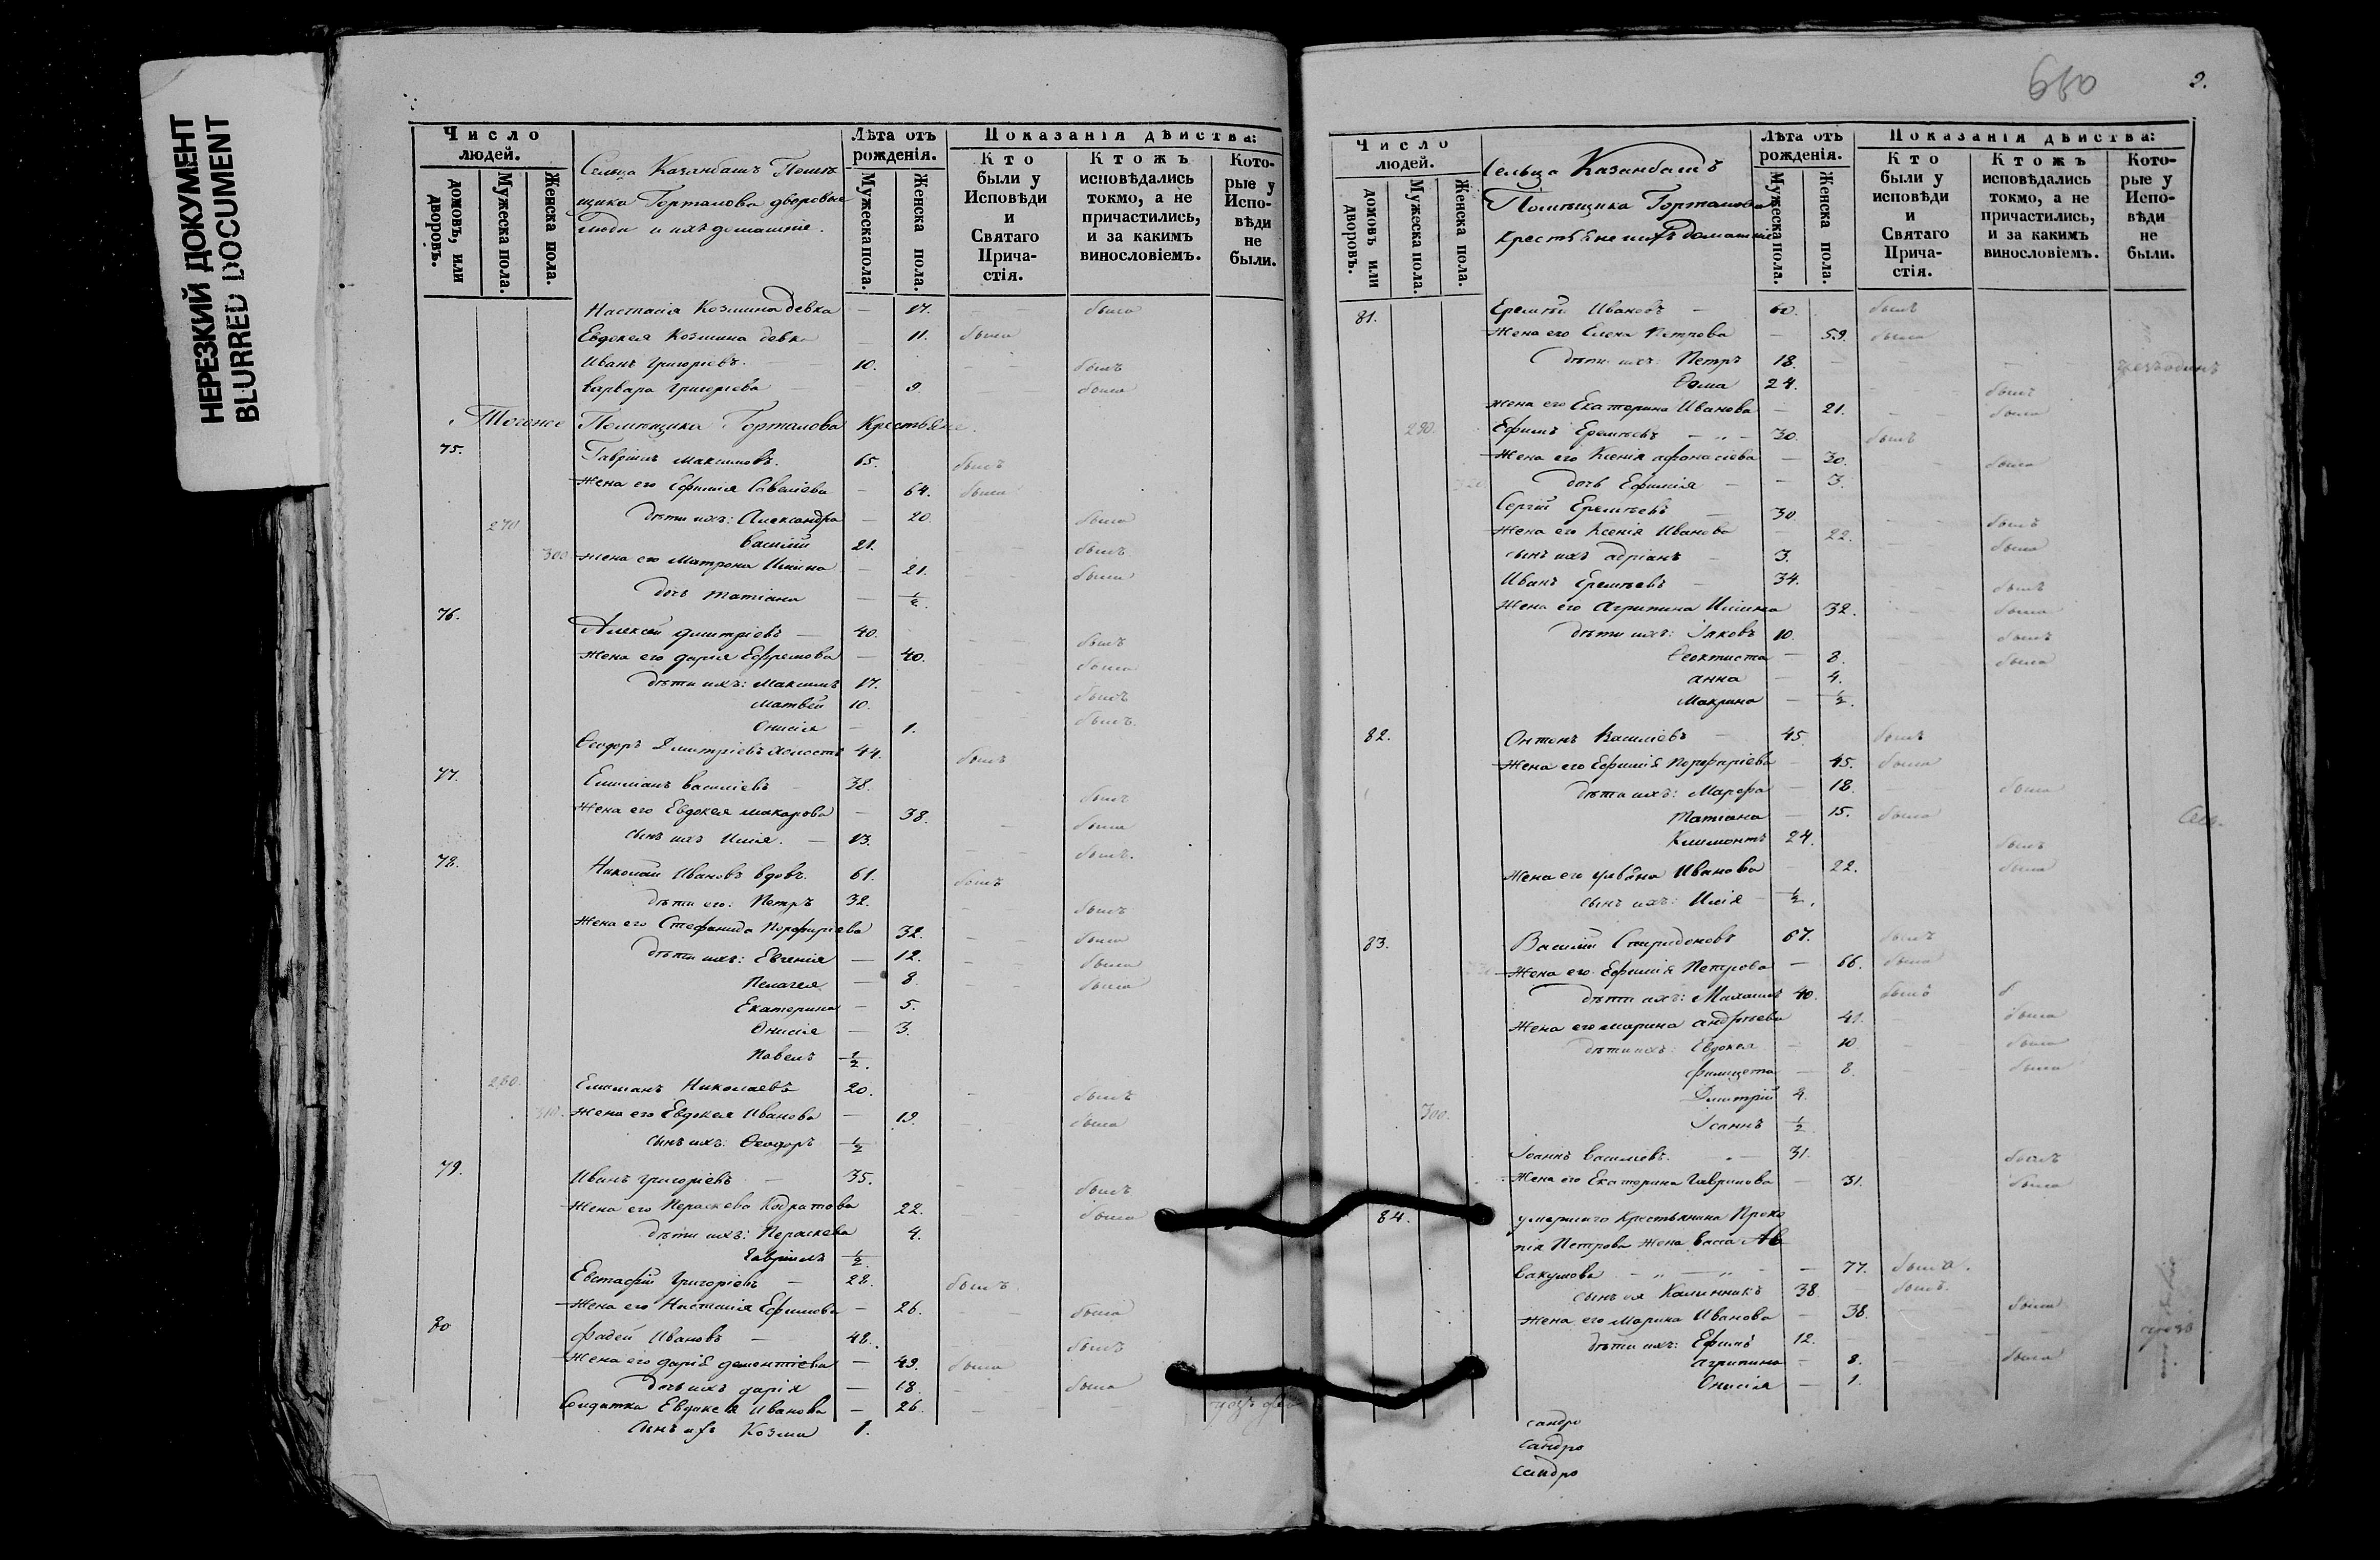 НЕРЕЗКИЙ ДОКУМЕНТ
BLURRED DOCUMENT
Число людей.
домовъ, или дворовъ.
Мужеска пола.
Женска пола.
Сельца Казанбашъ Помѣ
щика Горталова дворовые
Люди и ихъ домашніе.
Лѣта отъ рожденія.
Мужеска пола.
Женска пола.
Показанія дѣйства:
Кто были у Исповѣди и Святаго Прича-стія.
Ктожъ исповѣдались токмо, а не причастились, и за какимъ винословіемъ.
Кото-рые у Испо-вѣди не были.
Настасія Козмина девка — 17. была
Евдокея Козмина девка — 11. была
Иванъ Григорьевъ. 10. былъ
Варвара Григорьева — 9. была
Тогоже Помѣщика Горталова Крестьяне.
75. Гавріилъ Максимовъ. 65. былъ
Жена его Ефимія Савеліева — 64. была
270 дѣти ихъ: Александра — 20. была
Василій 21. былъ
300 Жена его Матрона Ильина — 21. была
дочь Татіана — ½.
76. Алексѣй Дмитріевъ — 40. былъ
Жена его Дарія Ефремова — 40. была
дѣти ихъ: Максимъ 17. былъ
Матвей 10. былъ.
Онисія — 1.
Ѳеодоръ Дмитріевъ холостъ 44. былъ
77. Емиліанъ Василіевъ 38. былъ
Жена его Евдокея Макарова — 38. была
сынъ ихъ Илія. — 13. былъ.
78. Николай Ивановъ вдовъ. 61. былъ
дѣти его: Петръ 32. былъ
Жена его Стефанида Порфиріева 32. была
дѣти ихъ: Евгенія — 12. была
Пелагея — 8. была
Екатерина — 5.
Онисія — 3.
Павелъ ½.
280. Емиліанъ Николаевъ 20. былъ
310. Жена его Евдокея Иванова — 19. была
сынъ ихъ: Ѳеодоръ ½
79. Иванъ Григоріевъ — 35. былъ
Жена его Пераскева Кодратова 22. была
дѣти ихъ: Пераскева 4.
Гавріилъ ½.
Евстафій Григоріевъ — 28. былъ
Жена его Настасія Ефимова — 26. была
80 Фадей Ивановъ — 48. былъ
Жена его Дарія Дементіева — 49. была
дочь ихъ Дарія — 18. была
Солдатка Евдокея Иванова — 26.
сынъ ихъ Козма 1.
660 2.
Число людей.
домовъ или дворовъ.
Мужеска пола.
Женска пола.
Сельца Казанбашъ
Помѣщика Горталова
крестьяне ихъ домашніе
Лѣта отъ рожденія.
Мужеска пола.
Женска пола.
Показанія дѣйства:
Кто были у исповѣди и Святаго Прича-стія.
Ктожъ исповѣдались токмо, а не причастились, и за какимъ винословіемъ.
Кото-рые у Испо-вѣди не были.
81. Еремѣй Ивановъ — 60. былъ
Жена его Елена Петрова — 59. была
дѣти ихъ: Петръ 18.
Ѳома 24. былъ
Жена его Екатерина Иванова — 21. была
290. Ефимъ Еремѣевъ — 30. былъ
Жена его Ксенія Афонасіева — 30. была
320 дочь Ефимія — 3.
Сергій Еремѣевъ — 30 былъ
Жена его Ксенія Иванова — 22. была
сынъ ихъ Адріанъ — 3.
Иванъ Еремѣевъ — 34. былъ
Жена его Агрипина Ильина 32. была
дѣти ихъ: Іяковъ 10. былъ
Ѳеоктиста — 8. была
Анна — 4.
Макрина — ½.
82. Онтонъ Василіевъ — 45. былъ
Жена его Ефимія Порфиріева — 45. была
дѣти ихъ: Марфа — 18. была
Татіана — 15. была
Климонтъ 24. былъ
Жена его Улвяна Иванова — 22. была
сынъ ихъ: Илія — ½.
83. Василій Спиридоновъ 67. былъ
Жена его Ефимія Петрова — 66. была
дѣти ихъ: Михаилъ 40. былъ б
Жена его Марина Андрѣева 41. была
дѣти ихъ: Евдокея — 10 была
Филицета — 8. была
Дмитрій 4.
300. Іоаннъ ½
Іоаннъ Василіевъ. — 31. былъ
Жена его Екатерина Гаврилова — 31. была
84. Умершаго Крестьянина Проко
пія Петрова жена Васса Ав
вакумова — 77. была.
сынъ ея Калинникъ 38. былъ.
Жена его Марина Иванова — 38. была
дѣти ихъ: Ефимъ 12.
Агрипина — 8. была
Онисія — 1.
сандро
сандро
сандро